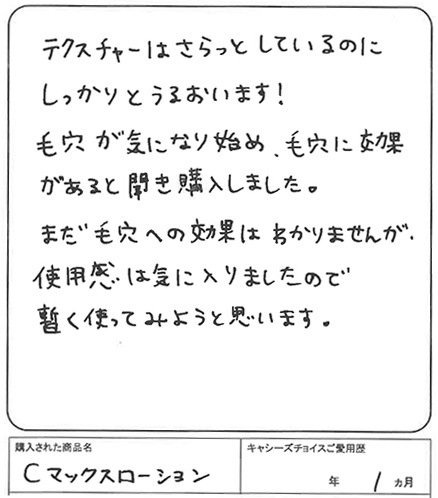 テクスチャーはさらっとしているのに
しっかりとうるおいます!
毛穴が気になり始め、毛穴に効果
があると聞き購入しました。
まだ毛穴への効果はわかりませんが、
使用感は気に入りましたので
暫く使ってみようと思います。
購入された商品名
Cマックスローション
キャシーズチョイスご愛用歴
年 1 ヵ月